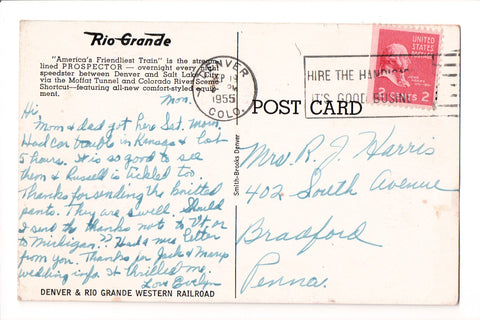 Rio Grande
"America's Friendliest Train" is the stream-
lined PROSPECTOR — overnight every night
speedster between Denver and Salt Lake City
via the Moffat Tunnel and Colorado River Scenic
Shortcut—featuring all-new comfort-styled equip-
ment.
Mon.
Hi,
Mom & dad got here Sat. morn.
Had car trouble in Kansas & lost
5 hours. It is so good to see
them & Russell is tickled too.
Thanks for sending the knitted
pants. They are swell. Should
I send the thanks not to Vt. or
to Michigan?? Had a nice letter
from you. Thanks for Jack & Marys
wedding info. It thrilled me.
Love Evelyn
DENVER & RIO GRANDE WESTERN RAILROAD
Smith-Brooks Denver
DENVER
SEP 19
PM
1955
COLO.
HIRE THE HANDICA
IT'S GOOD BUSIN
UNITED STATES
2 CENTS 2
POST CARD
Mrs. R. J. Harris
402 South Avenue
Bradford
Penna.